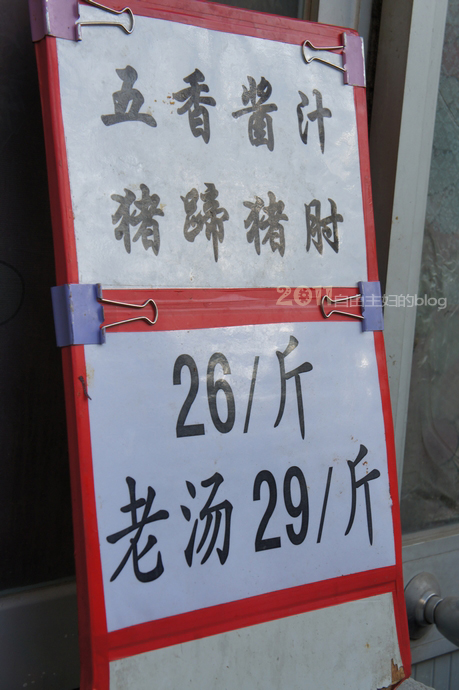 五香酱汁
猪蹄猪肘
2011自由主妇的blog
26/斤
老汤29/斤